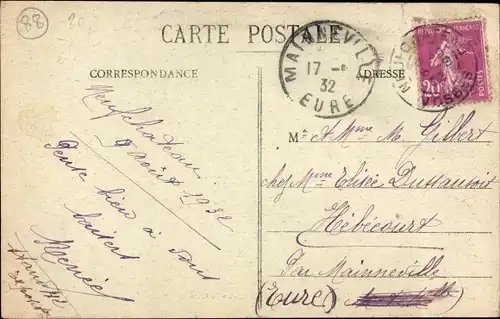 88
20
CARTE POSTALE
CORRESPONDANCE
ADRESSE
MAINNEVILLE
17 - 8
32
EURE
REPUBLIQUE FRANÇAISE
20c
VOSGES
Neufchateau
9 août 1932
Pense bien à vous
baisers
Mr et Mme M. Gilbert
chez Mme Elisée Dussaussoit
Hébécourt
Par Mainneville
(Eure)